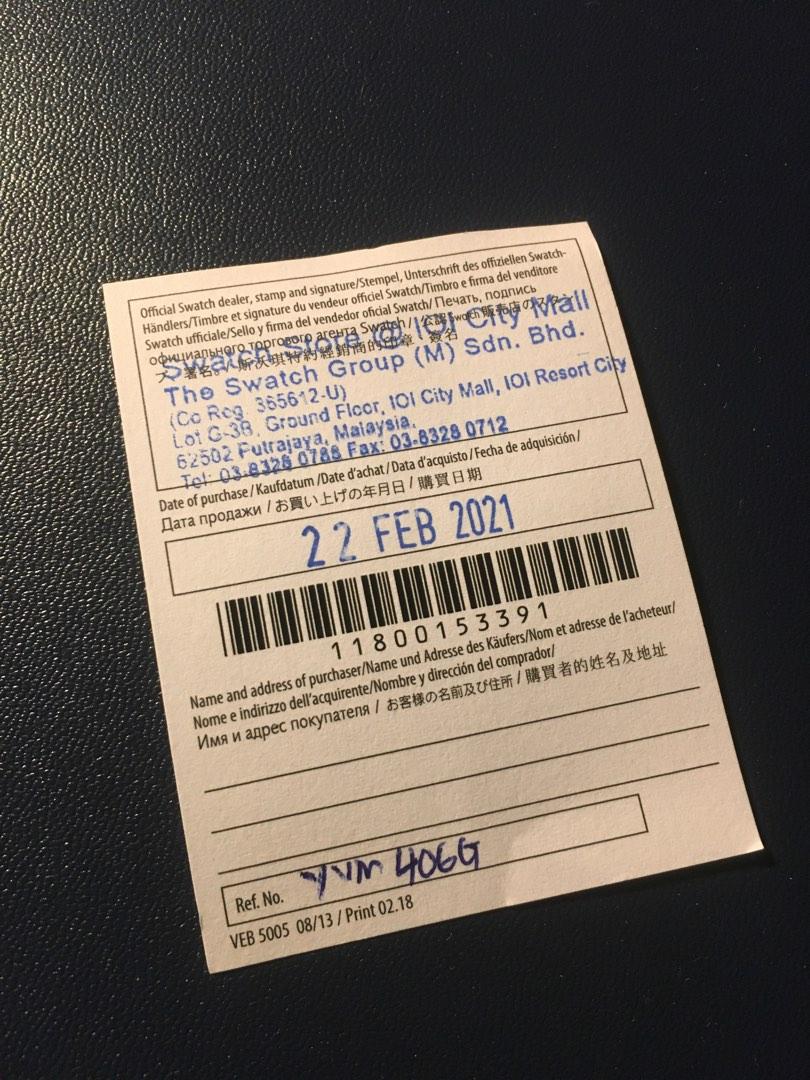 Official Swatch dealer, stamp and signature/Stempel, Unterschrift des offiziellen Swatch-
Händlers/Timbre et signature du vendeur officiel Swatch/Timbro e firma del venditore
Swatch ufficiale/Sello y firma del vendedor oficial Swatch/Печать, подпись
официального торгового агента Swatch/公認Swatch販売店のスタン
プ、署名。/斯沃琪特約經銷商的印章、簽名
Swatch Store @ IOI City Mall
The Swatch Group (M) Sdn. Bhd.
(Co Reg. 365612-U)
Lot G-38, Ground Floor, IOI City Mall, IOI Resort City
62502 Putrajaya, Malaysia.
Tel: 03-8328 0788 Fax: 03-8328 0712
Date of purchase/Kaufdatum/Date d'achat/Data d'acquisto/Fecha de adquisición/
Дата продажи/お買い上げの年月日/購買日期
22 FEB 2021
11800153391
Name and address of purchaser/Name und Adresse des Käufers/Nom et adresse de l'acheteur/
Nome e indirizzo dell'acquirente/Nombre y dirección del comprador/
Имя и адрес покупателя / お客様の名前及び住所 / 購買者的姓名及地址
Ref. No. YVM 406G
VEB 5005 08/13 / Print 02.18